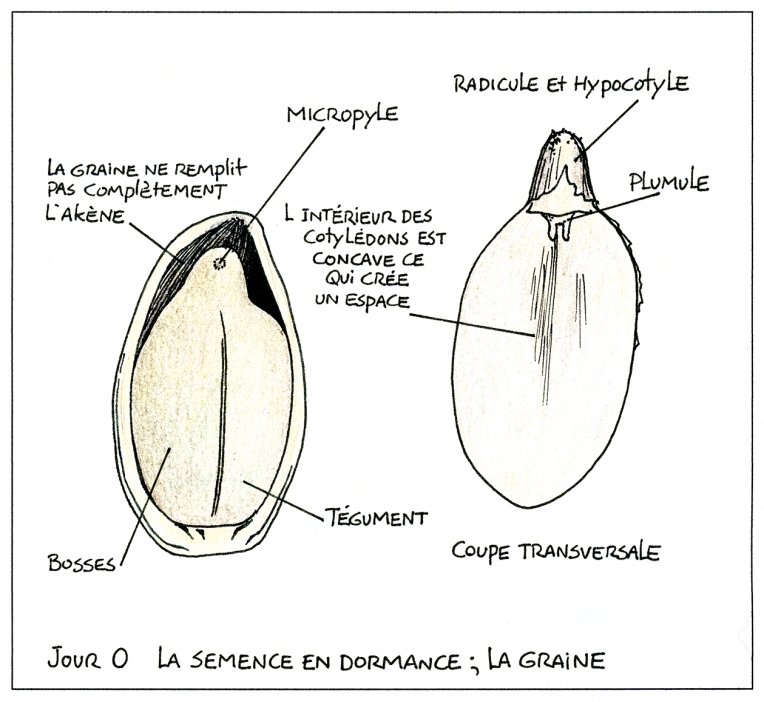 RADICULE Et HYPOCOTYLE
MICROPYLE
LA GRAINE NE REMPLIT
PAS COMPLÈTEMENT
L'AKÈNE
PLUMULE
L INTÉRIEUR DES
COTYLÉDONS EST
CONCAVE CE
QUI CRÉE
UN ESPACE
TÉGUMENT
BOSSES
COUPE TRANSVERSALE
JOUR 0 LA SEMENCE EN DORMANCE ; LA GRAINE